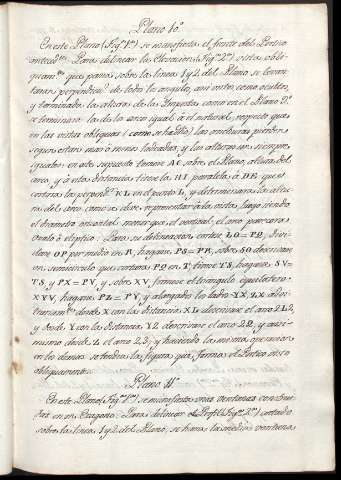 Plano 10.º
En este Plano (Fig.ª 1.ª) se manifiesta el frente del Portico
antecd.te Para delinear la Elevacion (Fig.ª 2.ª) vista oblic-
quam.te que pasa sobre la linea 1 y 2 del Plano se levan-
taran perpendic.s de todo lo angulo, asi vistos, como ocultos,
y terminadas las alturas de las Impostas como en el Plano 9.º
se terminara la de los arcos igual á el natural, respecto que
en las vistas obliquas (como se ha dho) las anchuras pierden
segun estan más ó menos ladeadas, y las alturas son siempre
iguales: en este supuesto tomese AC sobre el Plano, altura del
arco, y á esta distancia tirese la HI paralela á DB que
cortara las perpend.s KL en el punto L, y determinara la altu-
ra del arco como se deve representar á la vista; luego siendo
el diametro orisontal menor que el vertical, el arco parecera
ovalo ó eliptico: Para su delineacion cortese LO = PQ, divi-
dase OP por medio en R, hagase PS = PR, sobre SO descrivase
un semicirculo que cortara PQ en T, tomese TS, hagase SV =
TS, y PX = PV, y sobre XV formese el triangulo equilatero
XYV, hagase PZ = PX y alargados los lados YX, ZX
desde X con la distancia XL descrivase el arco 2L2,
y desde Y con la distancia Y2 descrivase el arco 2Q, y asi-
mismo desde Z el arco 22; y haciendo la misma operacion
en los demas se tendra la figura que forma el Portico visto
obliquamente.
Plano 11.º
En este Plano (Fig.ª 1.ª) se manifiestan unas ventanas construi-
das en un Torreon. Para delinear el Perfil (Fig.ª 2.ª) cortado
sobre la linea 1 y 2 del Plano, se hara la media ventana